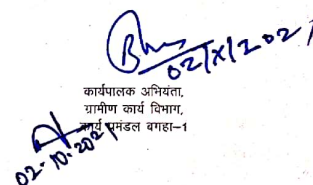 02/X/202
कार्यपालक अभियंता,
ग्रामीण कार्य विभाग,
कार्य प्रमंडल बगहा-1
02-10-202